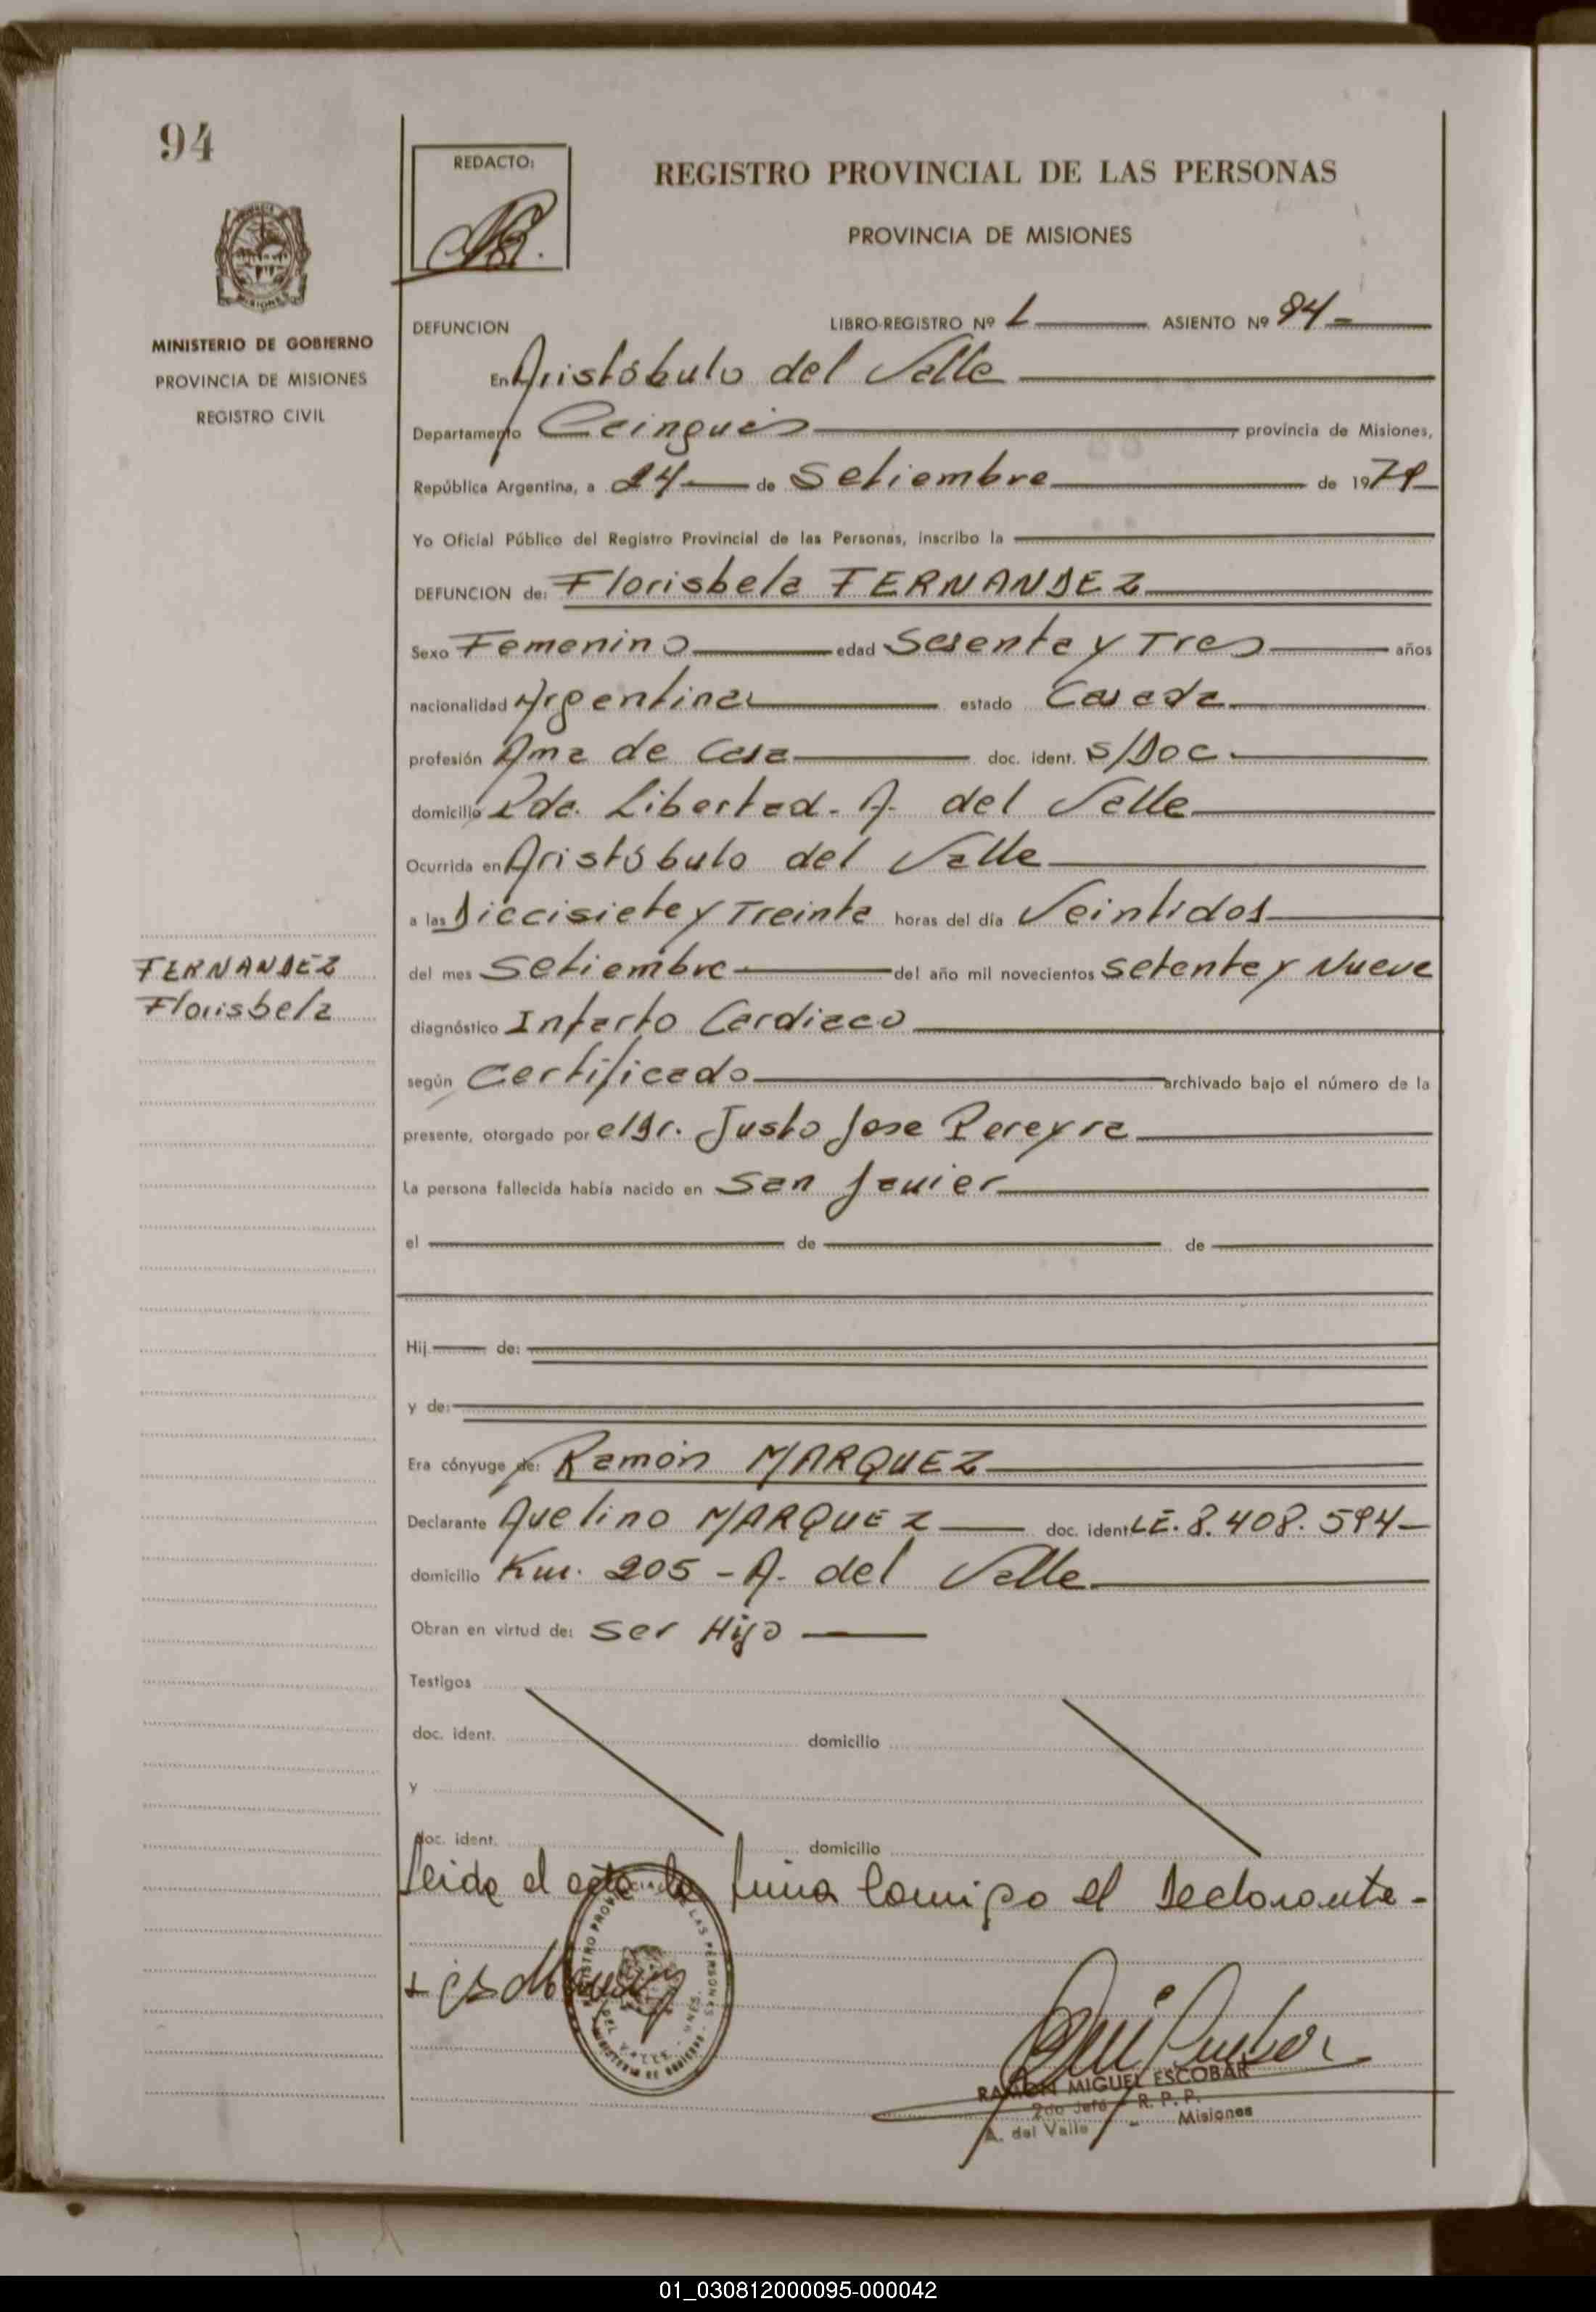 94
REDACTO:
REGISTRO PROVINCIAL DE LAS PERSONAS
PROVINCIA DE MISIONES
MINISTERIO DE GOBIERNO
PROVINCIA DE MISIONES
REGISTRO CIVIL
DEFUNCION LIBRO-REGISTRO Nº 1 ASIENTO Nº 94-
En Aristóbulo del Valle
Departamento Cainguás provincia de Misiones,
República Argentina, a 24 de Setiembre de 1979
Yo Oficial Público del Registro Provincial de las Personas, inscribo la
DEFUNCION de: Florisbela FERNANDEZ
Sexo Femenino edad Sesenta y Tres años
nacionalidad Argentina estado Casada
profesión Ama de Casa doc. ident. S/Doc.
domicilio Pda. Libertad - A. del Valle
Ocurrida en Aristóbulo del Valle
a las Diecisiete y Treinta horas del día Veintidos
FERNANDEZ
Florisbela
del mes Setiembre del año mil novecientos Setenta y Nueve
diagnóstico Infarto Cardiaco
según Certificado archivado bajo el número de la
presente, otorgado por el Dr. Justo Jose Pereyra
La persona fallecida había nacido en San Javier
el de de
Hij de:
y de:
Era cónyuge de: Ramón MARQUEZ
Declarante Avelino MARQUEZ doc. ident LE. 8.408.594
domicilio Km. 205 - A. del Valle
Obran en virtud de: Ser Hijo
Testigos
doc. ident. domicilio
y
doc. ident. domicilio
Leida el acta la firma Conmigo el Declarante -
RAMON MIGUEL ESCOBAR
2do Jefe - R. P. P.
A. del Valle - Misiones
01_030812000095-000042